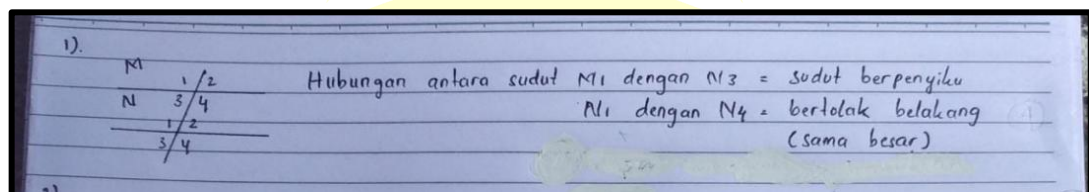 1).
M 1 2
N 3 4
1 2
3 4
Hubungan antara sudut M1 dengan N3 = sudut berpenyiku
N1 dengan N4 = bertolak belakang
(sama besar)